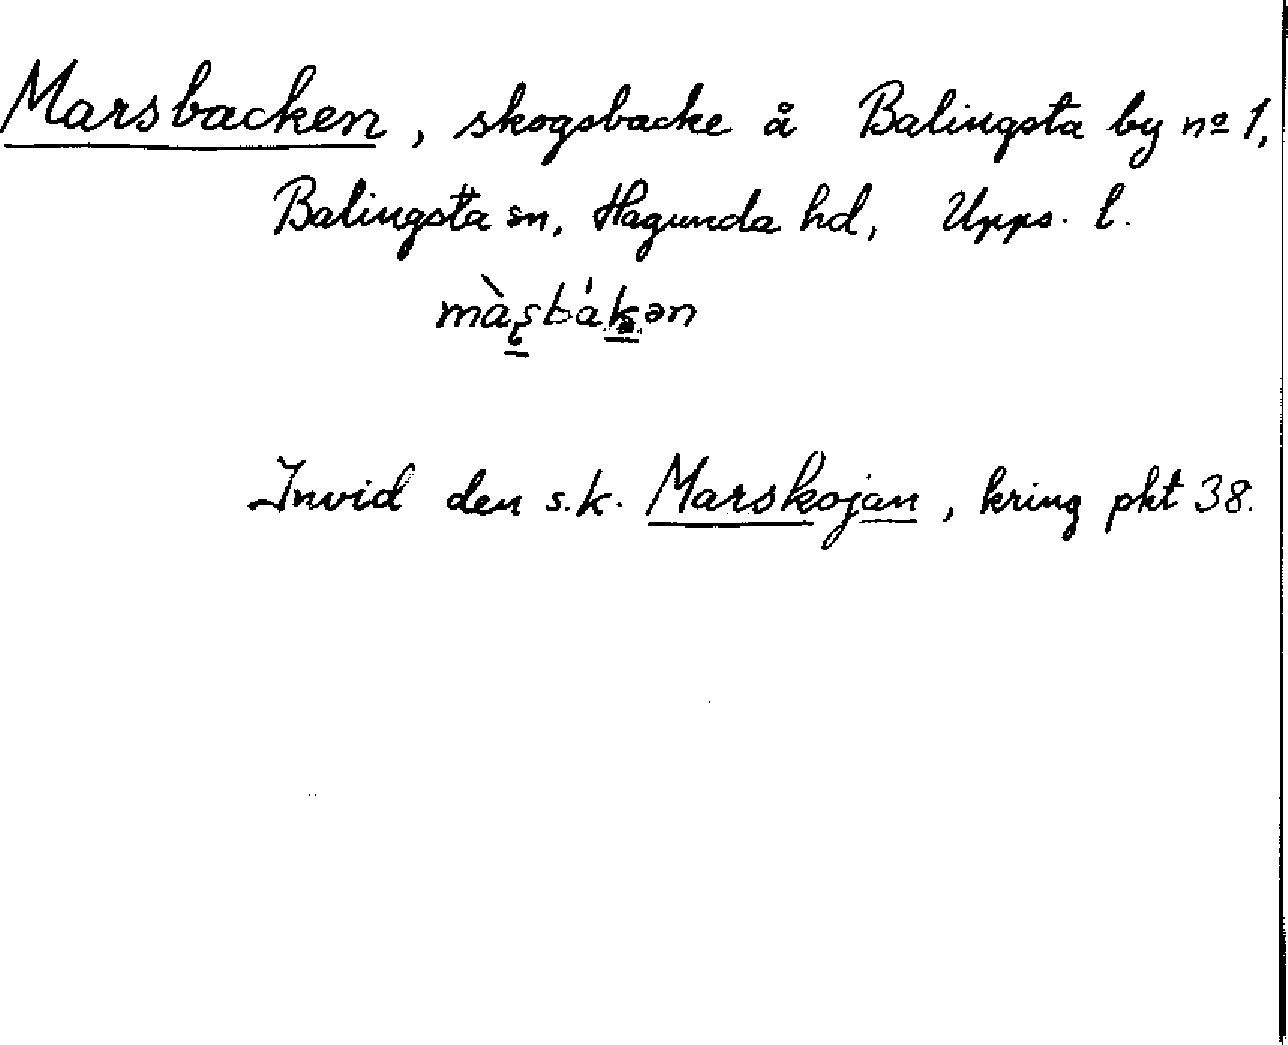 Marsbacken, skogsbacke å Balingsta by nº 1,
Balingsta sn, Hagunda hd, Upps. l.
màʂbákən
Invid den s.k. Marskojan, kring pkt 38.